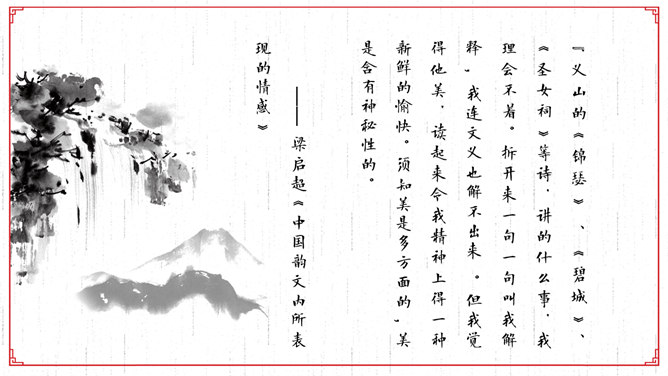 『义山的《锦瑟》、《碧城》、
《圣女祠》等诗，讲的什么事，我
理会不着。拆开来一句一句叫我解
释，我连文义也解不出来。但我觉
得他美，读起来令我精神上得一种
新鲜的愉快。须知美是多方面的，美
是含有神秘性的。
——梁启超《中国韵文内所表
现的情感》